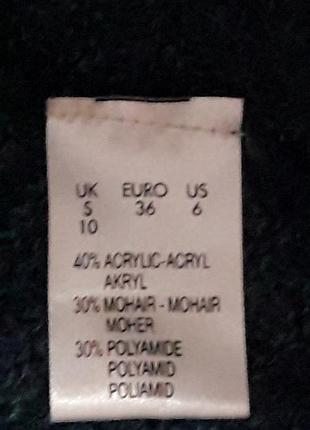 UK EURO US
S 36 6
10
40% ACRYLIC-ACRYL
AKRYL
30% MOHAIR - MOHAIR
MOHER
30% POLYAMIDE
POLYAMID
POLIAMID